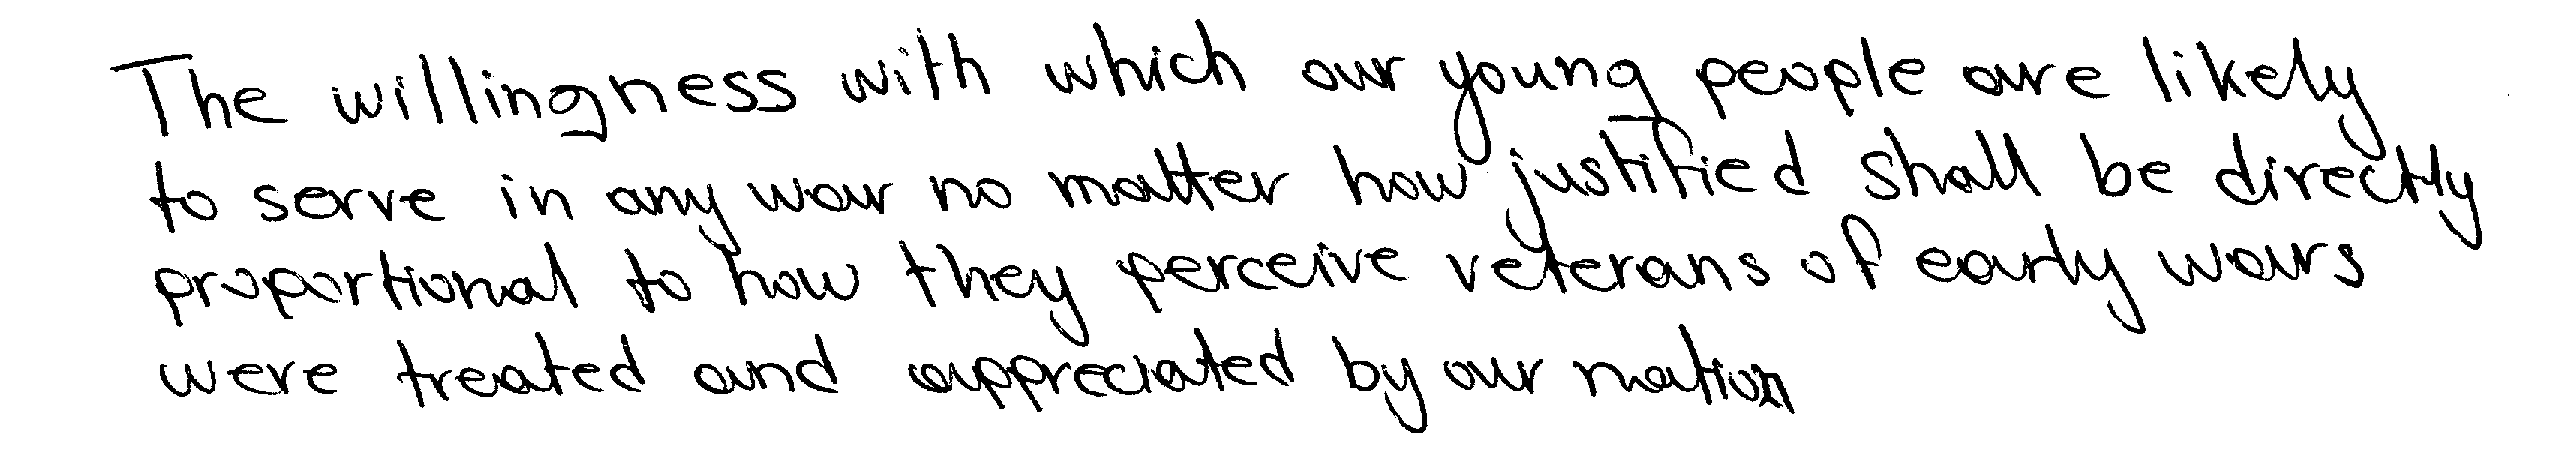 The willingness with which our young people are likely
to serve in any war no matter how justified shall be directly
proportional to how they perceive veterans of early wars
were treated and appreciated by our nation